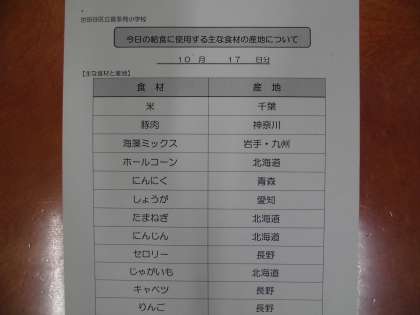 世田谷区立喜多見小学校
今日の給食に使用する主な食材の産地について
10 月 17 日分
【主な食材と産地】
食 材 産 地
米 千葉
豚肉 神奈川
海藻ミックス 岩手・九州
ホールコーン 北海道
にんにく 青森
しょうが 愛知
たまねぎ 北海道
にんじん 北海道
セロリー 長野
じゃがいも 北海道
キャベツ 長野
りんご 長野